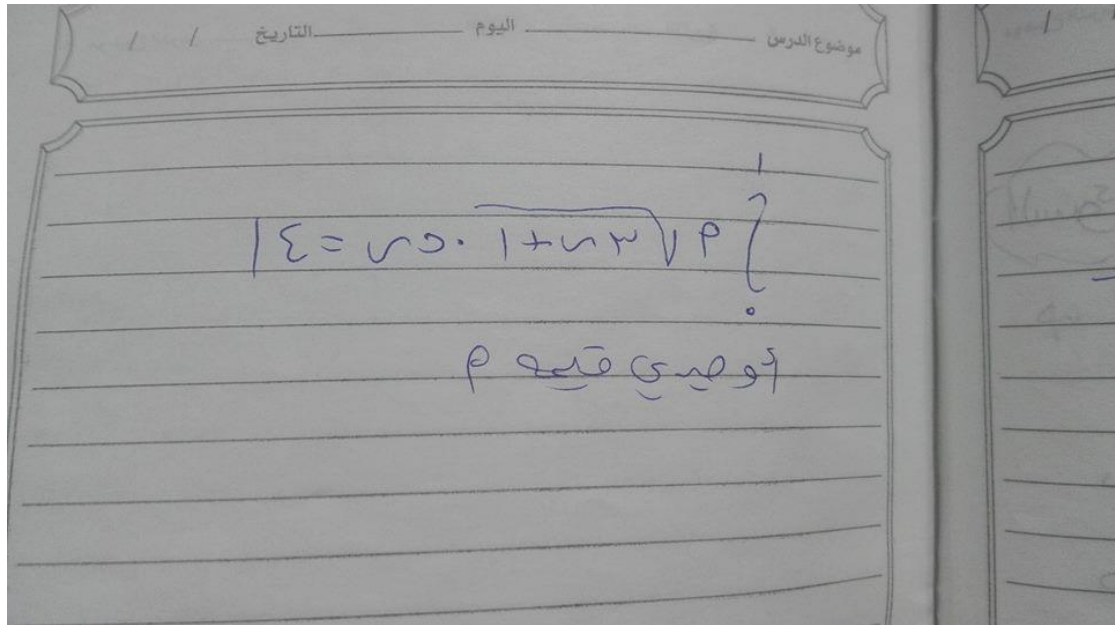 موضوع الدرس اليوم التاريخ / /
١
∫ م √(٣س+١) . دس = ١٤
٠
أوجدي قيمة م